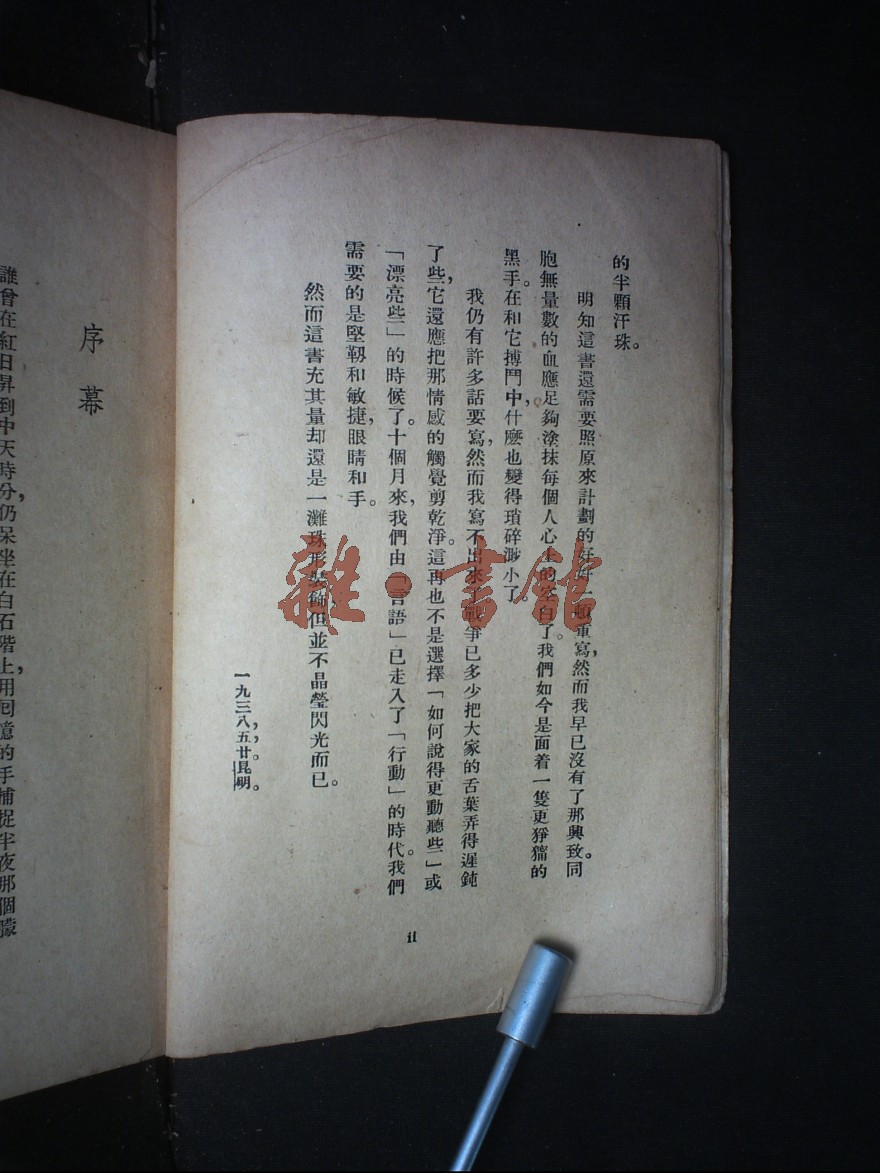 的半顆汗珠。
明知這書還需要照原來計劃的好好一頓重寫，然而我早已沒有了那興致。同
胞無量數的血應足夠塗抹每個人心上的空白了。我們如今是面着一隻更猙獰的
黑手。在和它搏鬥中，什麼也變得瑣碎渺小了。
我仍有許多話要寫，然而我寫不出來。戰爭已多少把大家的舌葉弄得遲鈍
了些，它還應把那情感的觸覺剪乾淨。這再也不是選擇「如何說得更動聽些」或
「漂亮些」的時候了。十個月來，我們由「言語」已走入了「行動」的時代。我們
需要的是堅韌和敏捷，眼睛和手。
然而這書充其量却還是一灘珠形裝飾，但並不晶瑩閃光而已。
一九三八，五，廿。昆明。
ii
序幕
誰曾在紅日昇到中天時分，仍呆坐在白石階上，用回憶的手捕捉半夜那個朦
雜·書館